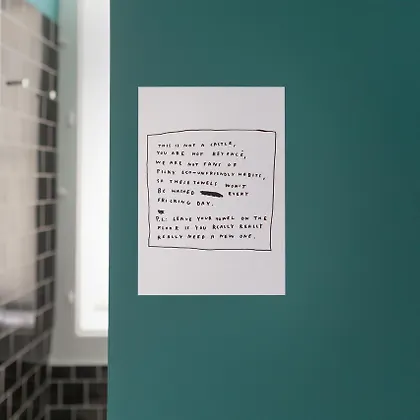 THIS IS NOT A CASTLE,
YOU ARE NOT BEYONCÉ,
WE ARE NOT FANS OF
FILTHY ECO-UNFRIENDLY HABITS,
SO THESE TOWELS WON'T
BE WASHED EVERY
FRICKING DAY.
P.S: LEAVE YOUR TOWEL ON THE
FLOOR IF YOU REALLY REALLY
REALLY NEED A NEW ONE.